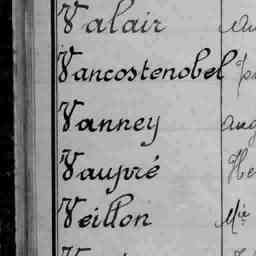 Valair
Vancostenobel
Vanney
Vaupré
Veillon Mie